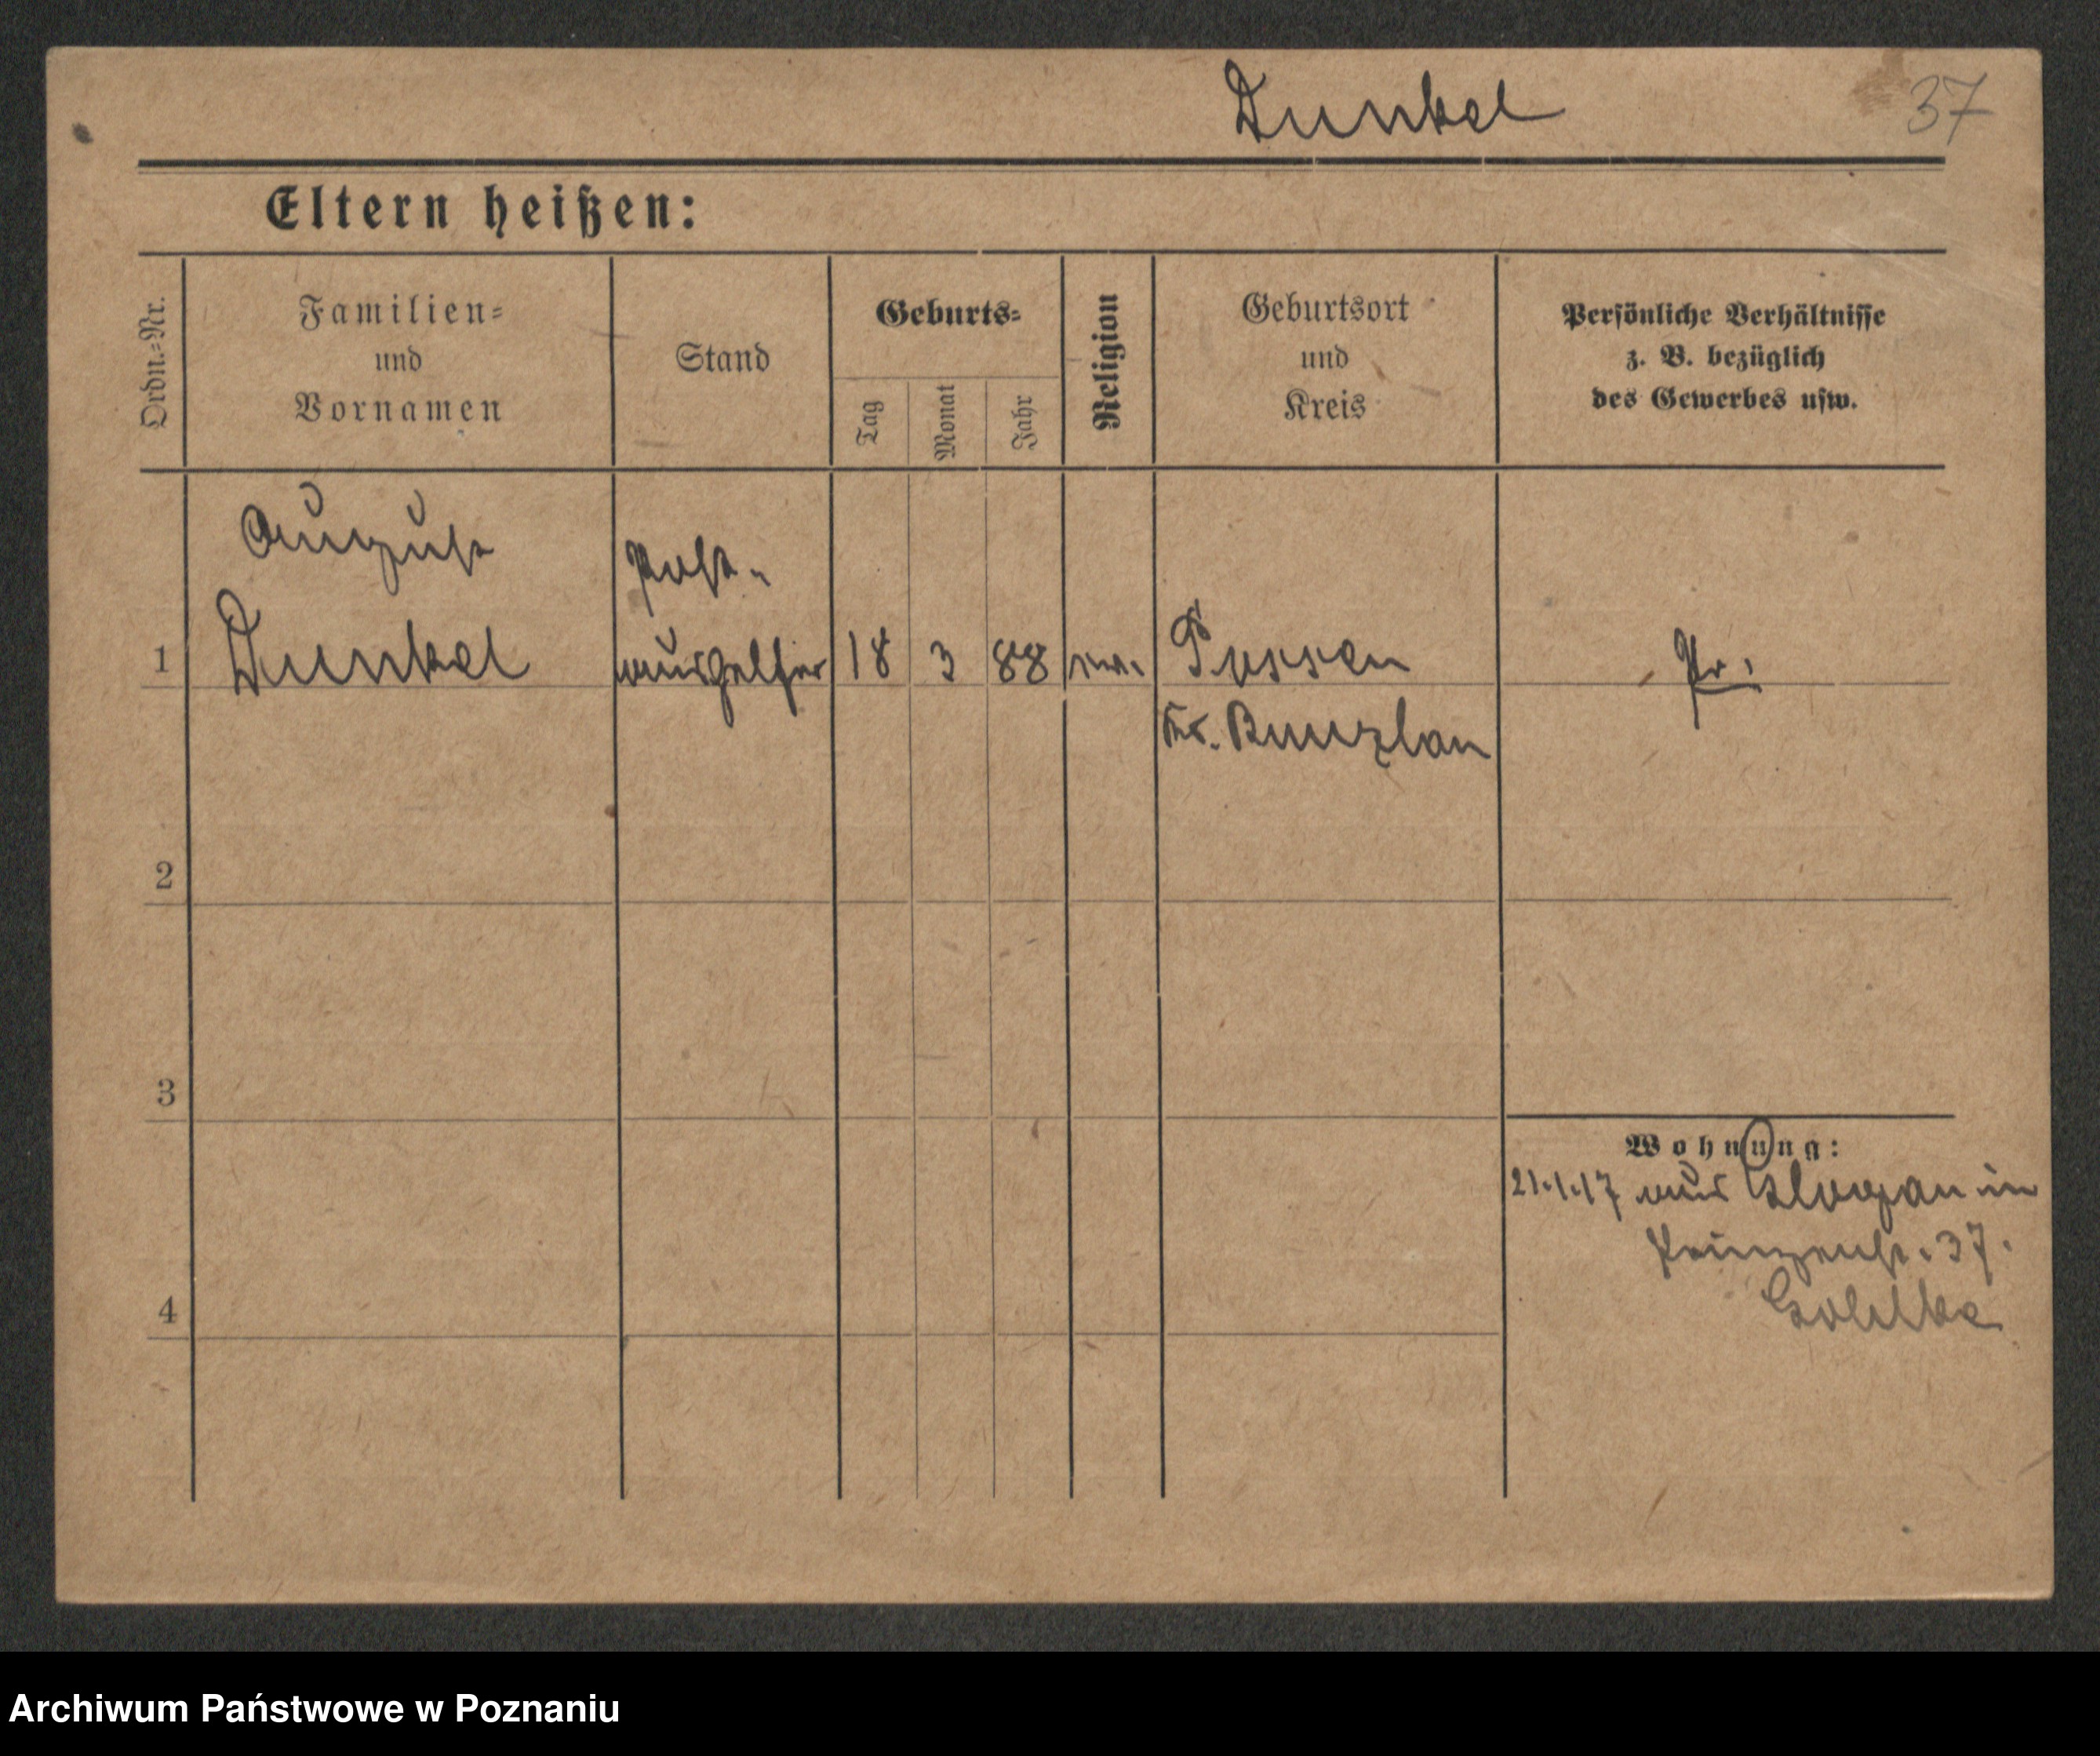 Dunkel
37
Eltern heißen:
Ordn.=Nr.
Familien=
und
Vornamen
Stand
Geburts=
Tag
Monat
Jahr
Religion
Geburtsort
und
Kreis
Persönliche Verhältnisse
z. B. bezüglich
des Gewerbes usw.
August
Dunkel
Post-
aushelfer
1
18
3
88
ev.
Possen
Kr. Bunzlau
Pr.
2
3
4
Wohnung:
21.1.17 aus Glogau in
Prinzenstr. 37.
Archiwum Państwowe w Poznaniu